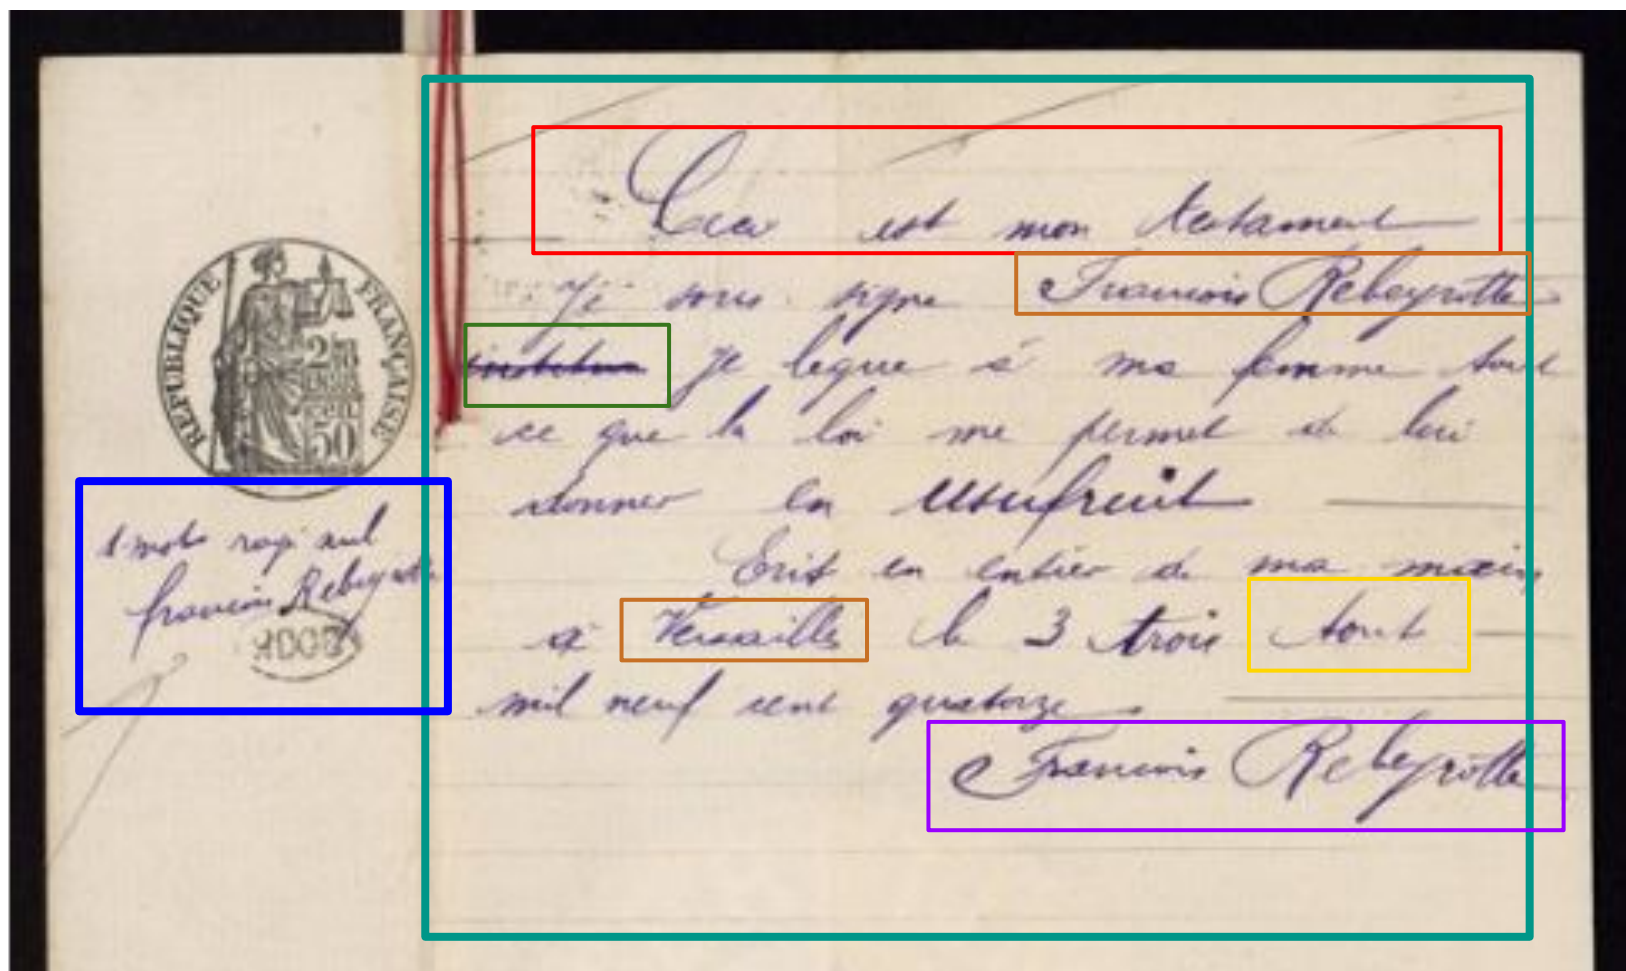 RÉPUBLIQUE FRANÇAISE
2 fr
50
1 mots rayé nul
francois Rebeyrotte
Ceci est mon testament
Je sous signe Francois Rebeyrotte
institue je legue à ma femme tout
ce que la loi me permet de lui
donner en usufruit
Ecrit en entier de ma main
a Versailles le 3 trois Aout
mil neuf cent quatorze
Francois Rebeyrotte